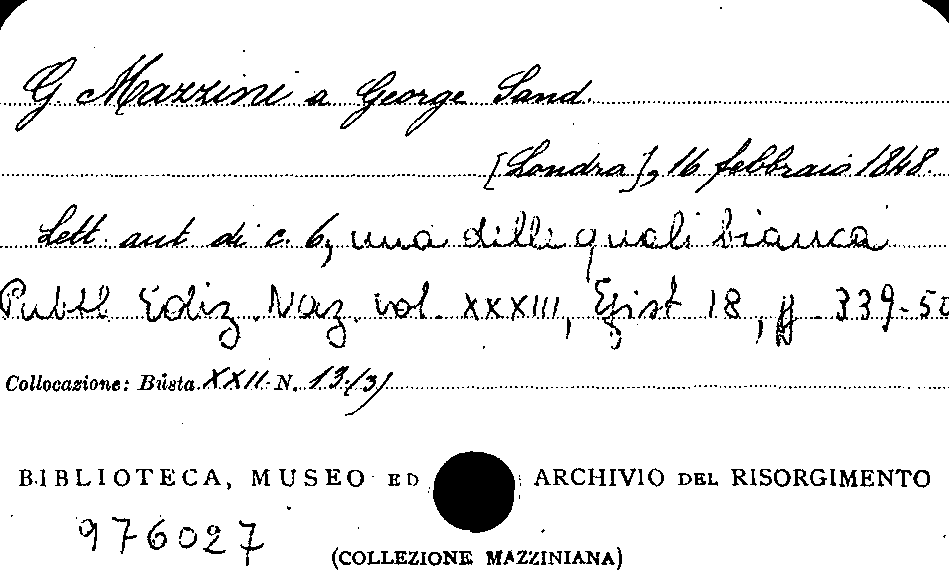 G. Mazzini a George Sand.
[Londra], 16 febbraio 1848.
Lett. aut. di c. 6, una delle quali bianca
Pubbl Ediz. Naz. vol. XXXIII, Epist 18, pp. 339-50
Collocazione: Busta XXII N. 13/3)
BIBLIOTECA, MUSEO ED ARCHIVIO DEL RISORGIMENTO
976027
(COLLEZIONE MAZZINIANA)